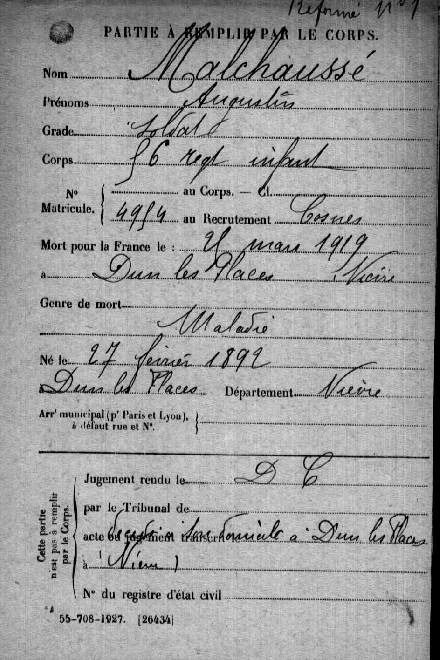 Réformé N° 1
PARTIE À REMPLIR PAR LE CORPS.
Nom Malchaussé
Prénoms Augustin
Grade Soldat
Corps 56 regt infant
N° Matricule. au Corps. — Cl.
4954 au Recrutement Cosnes
Mort pour la France le : 25 mars 1919
a Dun les Places Nièvre
Genre de mort
Maladie
Né le 27 février 1892
Dun les Places Département Nièvre
Arr' municipal (p' Paris et Lyon),
à défaut rue et N°.
Cette partie n'est pas à remplir par le Corps.
Jugement rendu le D C
par le Tribunal de
acte ou jugement domicile à Dun les Places
à (Nièvre)
N° du registre d'état civil
55-708-1927. [26434]